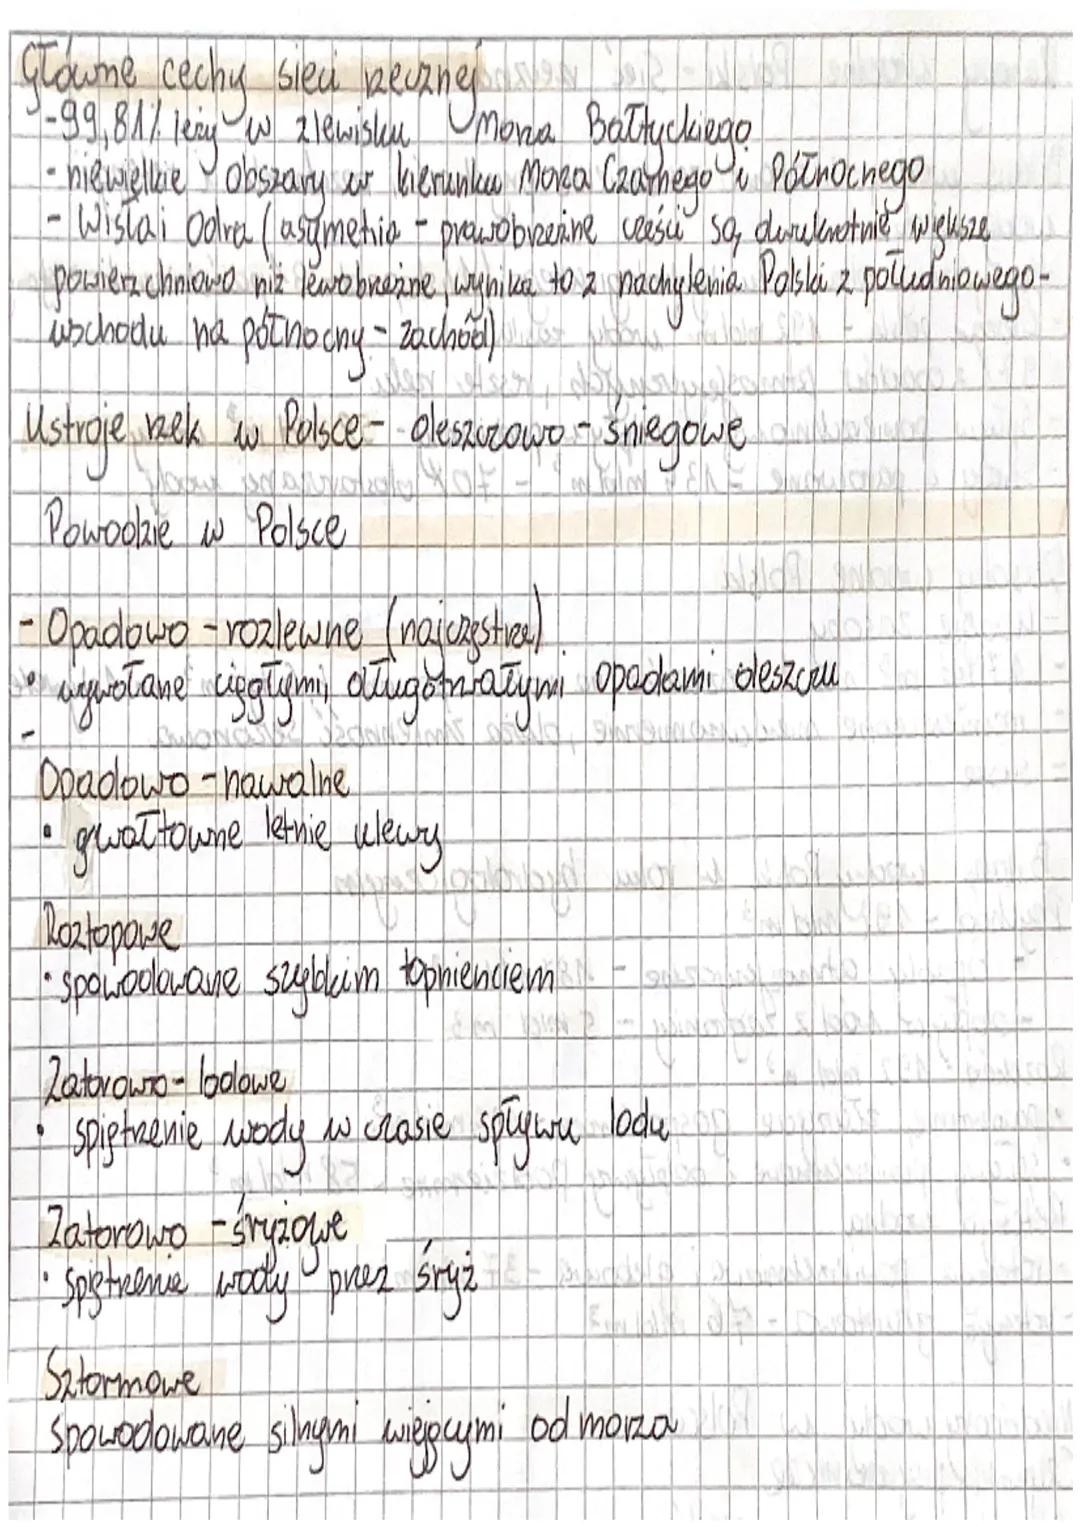 Główne cechy sieci rzecznej
-99,81% leży w zlewisku Morza Bałtyckiego
- niewielkie obszary w kierunku Morza Czarnego i Północnego
- Wisła i Odra (asymetria - prawobrzeżne części są dwukrotnie większe
powierzchniowo niż lewobrzeżne, wynika to z nachylenia Polski z południowego-
wschodu na północny - zachód)
Ustroje rzek w Polsce - deszczowo - śniegowe
Powodzie w Polsce
- Opadowo - rozlewne (najczęstsze)
• wywołane ciągłymi, długotrwałymi opadami deszczu
-
Opadowo - nawalne
• gwałtowne letnie ulewy
Roztopowe
• spowodowane szybkim topnieniem
Zatorowo - lodowe
• spiętrzenie wody w czasie spływu lodu
Zatorowo - śryżowe
• spiętrzenie wody przez śryż
Sztormowe
spowodowane silnymi wiejącymi od morza